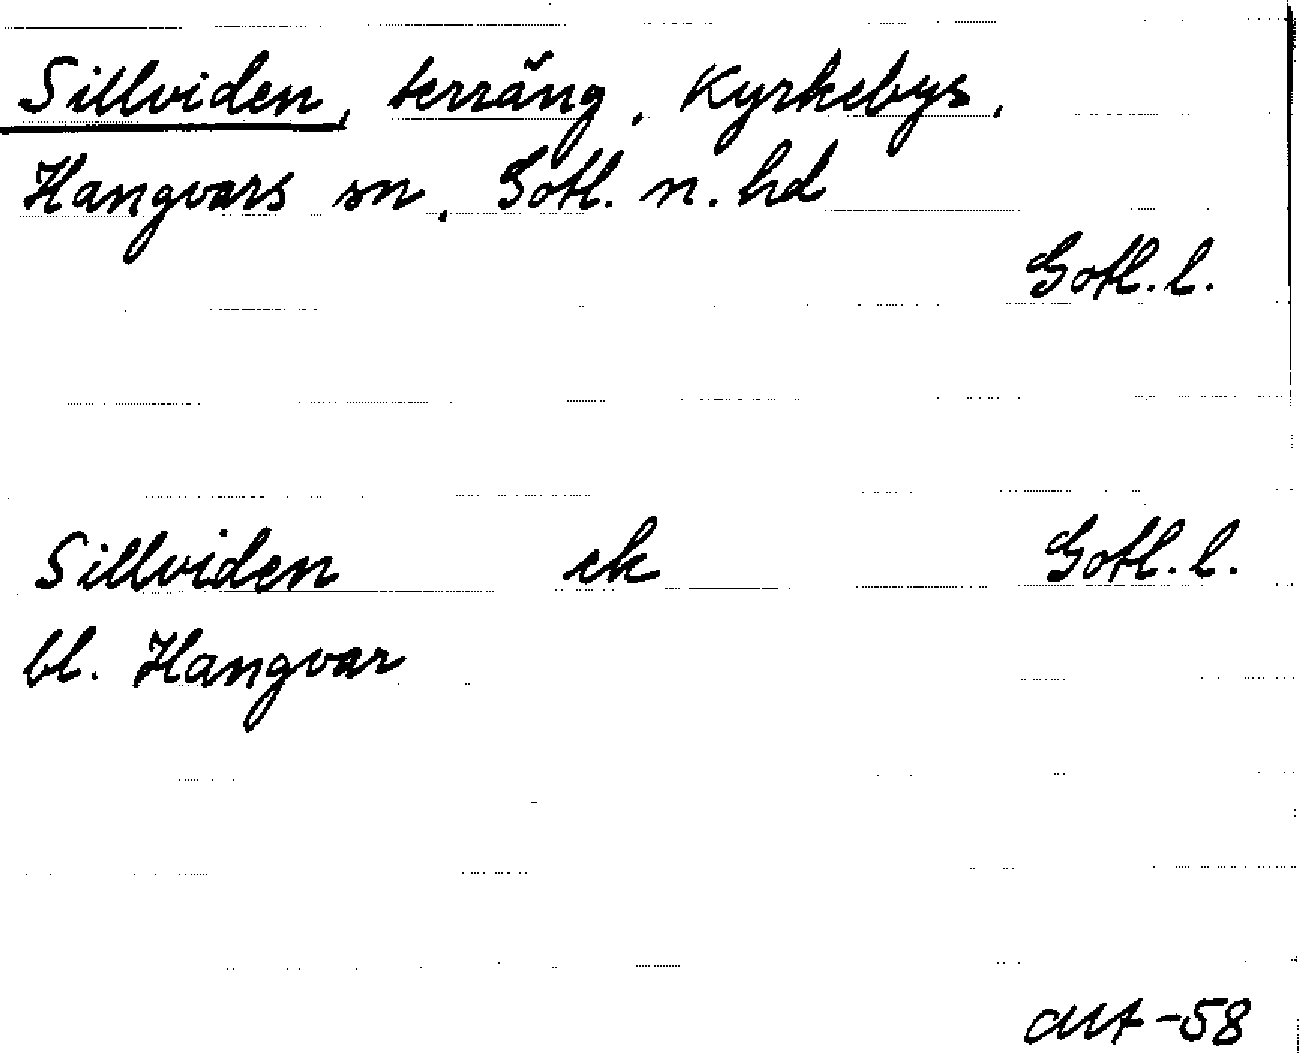 Sillviden, terräng, Kyrkebys,
Hangvars sn, Gotl. n. hd
Gotl. l.
Sillviden ek Gotl. l.
bl. Hangvar
-58